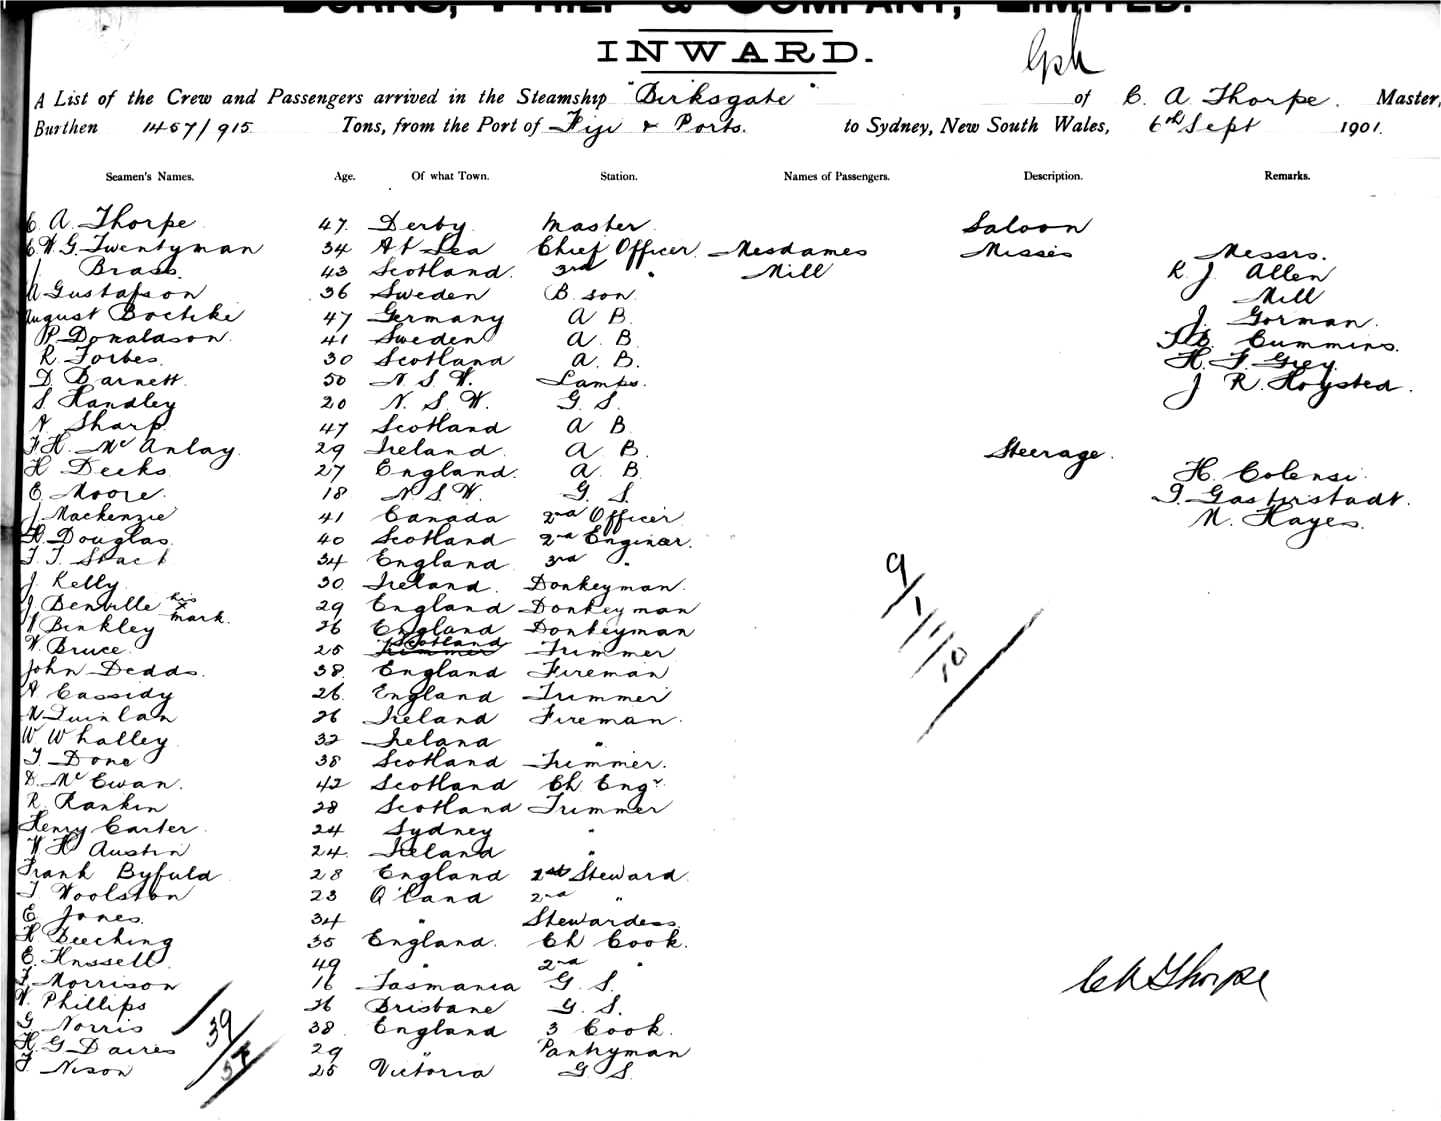 BURNS, PHILP & COMPANY, LIMITED.
INWARD.
A List of the Crew and Passengers arrived in the Steamship "Birksgate" of C. A. Thorpe. Master,
Burthen 1457/915 Tons, from the Port of Fiji & Ports. to Sydney, New South Wales, 6th Sept 1901.
Seamen's Names. Age. Of what Town. Station. Names of Passengers. Description. Remarks.
C. A. Thorpe 47. Derby Master Saloon
C. W. G. Twentyman 34 At Sea Chief Officer Mesdames Misses Messrs.
J. Brass. 43 Scotland. 3rd " Mill R. J. Allen
A Gustafson 36 Sweden B. son. Mill
August Boethke 47 Germany A B. J. Gorman.
P. Donaldson. 41 Sweden A. B. Cummins.
R. Forbes. 30 Scotland A. B. H. F. Grey.
D. Barnett. 50 N. S. W. Lamps. J R. Hoysted.
S. Handley 20 N. S. W. G. S.
A Sharp. 47 Scotland A B.
F H. McAnlay. 29 Ireland. A B. Steerage.
H Deeks. 27 England. A. B. H. Colensi.
E. Moore. 18 N. S. W. G. S. Gasterstadt.
J. Mackenzie 41 Canada 2nd Officer N. Hayes.
H. Douglas. 40 Scotland 2nd Engineer.
34 England 3rd "
J. Kelly. 30. Ireland. Donkeyman.
J Denville his x mark. 29 England Donkeyman
Binkley 26 England Donkeyman
W. Bruce. 25 Scotland Trimmer
John Dedds. 38. England Fireman
A Cassidy 26. England Trimmer
N Quinlan 26 Ireland Fireman.
W Whalley 32 Ireland "
T. Done 38 Scotland Trimmer.
D. McEwan. 42 Scotland Ch Engr.
R. Rankin 28 Scotland Trimmer
Henry Carter. 24 Sydney "
W H Austin 24. Ireland "
Frank Byfuld 28 England 1st Steward.
T Woolston 23 Q'land 2nd "
E. Jones. 34 " Stewardess.
H Beeching 35 England. Ch Cook.
E. Knssell. 49 " 2nd "
Morrison 16 Tasmania G. S.
W. Phillips 26 Brisbane G. S.
G Norris 38. England 3 Cook.
H. G Daires 29 " Pantryman
Nison 25 Victoria G. S.
9/1/10
39/57
C A Thorpe